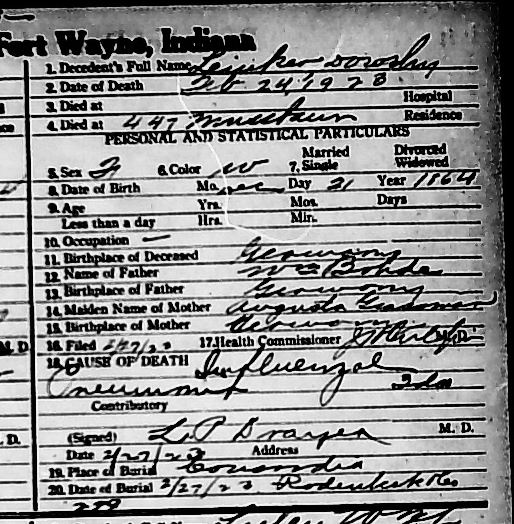 Fort Wayne, Indiana
1. Decedent's Full Name Dorothy
2. Date of Death Feb 24, 1923
3. Died at Hospital
4. Died at 447 Residence
PERSONAL AND STATISTICAL PARTICULARS
5. Sex F 6. Color W 7. Married Single Divorced Widowed
8. Date of Birth Mo. Dec Day 31 Year 1864
9. Age Yrs. Mos. Days
Less than a day Hrs. Min.
10. Occupation —
11. Birthplace of Deceased Germany
12. Name of Father Wm Bohde
13. Birthplace of Father Germany
14. Maiden Name of Mother Augusta
15. Birthplace of Mother Germany
M. D. 16. Filed 2/27/23 17. Health Commissioner
18. CAUSE OF DEATH Influenzal
Pneumonia
Contributory
. D. (Signed) L. P. Drayer M. D.
Date 2/27/23 Address
19. Place of Burial Concordia
20. Date of Burial 2/27/23